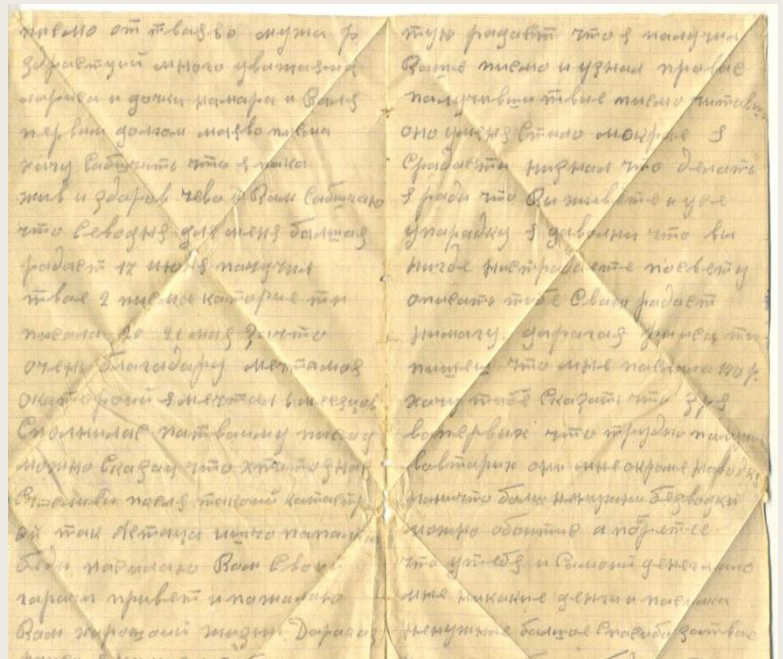 писмо от тваево мужа
здраствуй много уважаемая
лариса и дочки тамара и Валя
первым долгом маево писма
хачу Сабщить что я пака
жив и здаров чево и Вам Сабщаю
что Севодня для меня балшая
радаст 17 июня палучил
твае 2 писма каторые ты
писала 20 21 мая за что
очень благадару мечта мая
окаторой я мечтал
Сполнилас патваиму
можно Сказат что
посля такой
так астался
беды пасилаю Вам Свой
гарачи привет и пажалаю
Вам харошай жизни Дарагая
тую радаст что я палучил
Ваше писмо и узнал про вас
палучивши твае писмо читавши
оно уменя Стало мокрае я
Срадасти низнал что делать
я рад что Вы живете и усе
упарадку я даволни что вы
нигде нистрадаете
описать тебе Сваю радаст
нимагу. дарагая ты
пишеш что мне паслала 140 р
хачу тебе Сказать что зря
вапервых что трудно
вавтарых они мне окроме
нинашто болш ненужни безводки
можно обоитис а
что утебя и Самой денег мало
мне никакие денги и пасилки
ненужние балшое Спасиба затвае